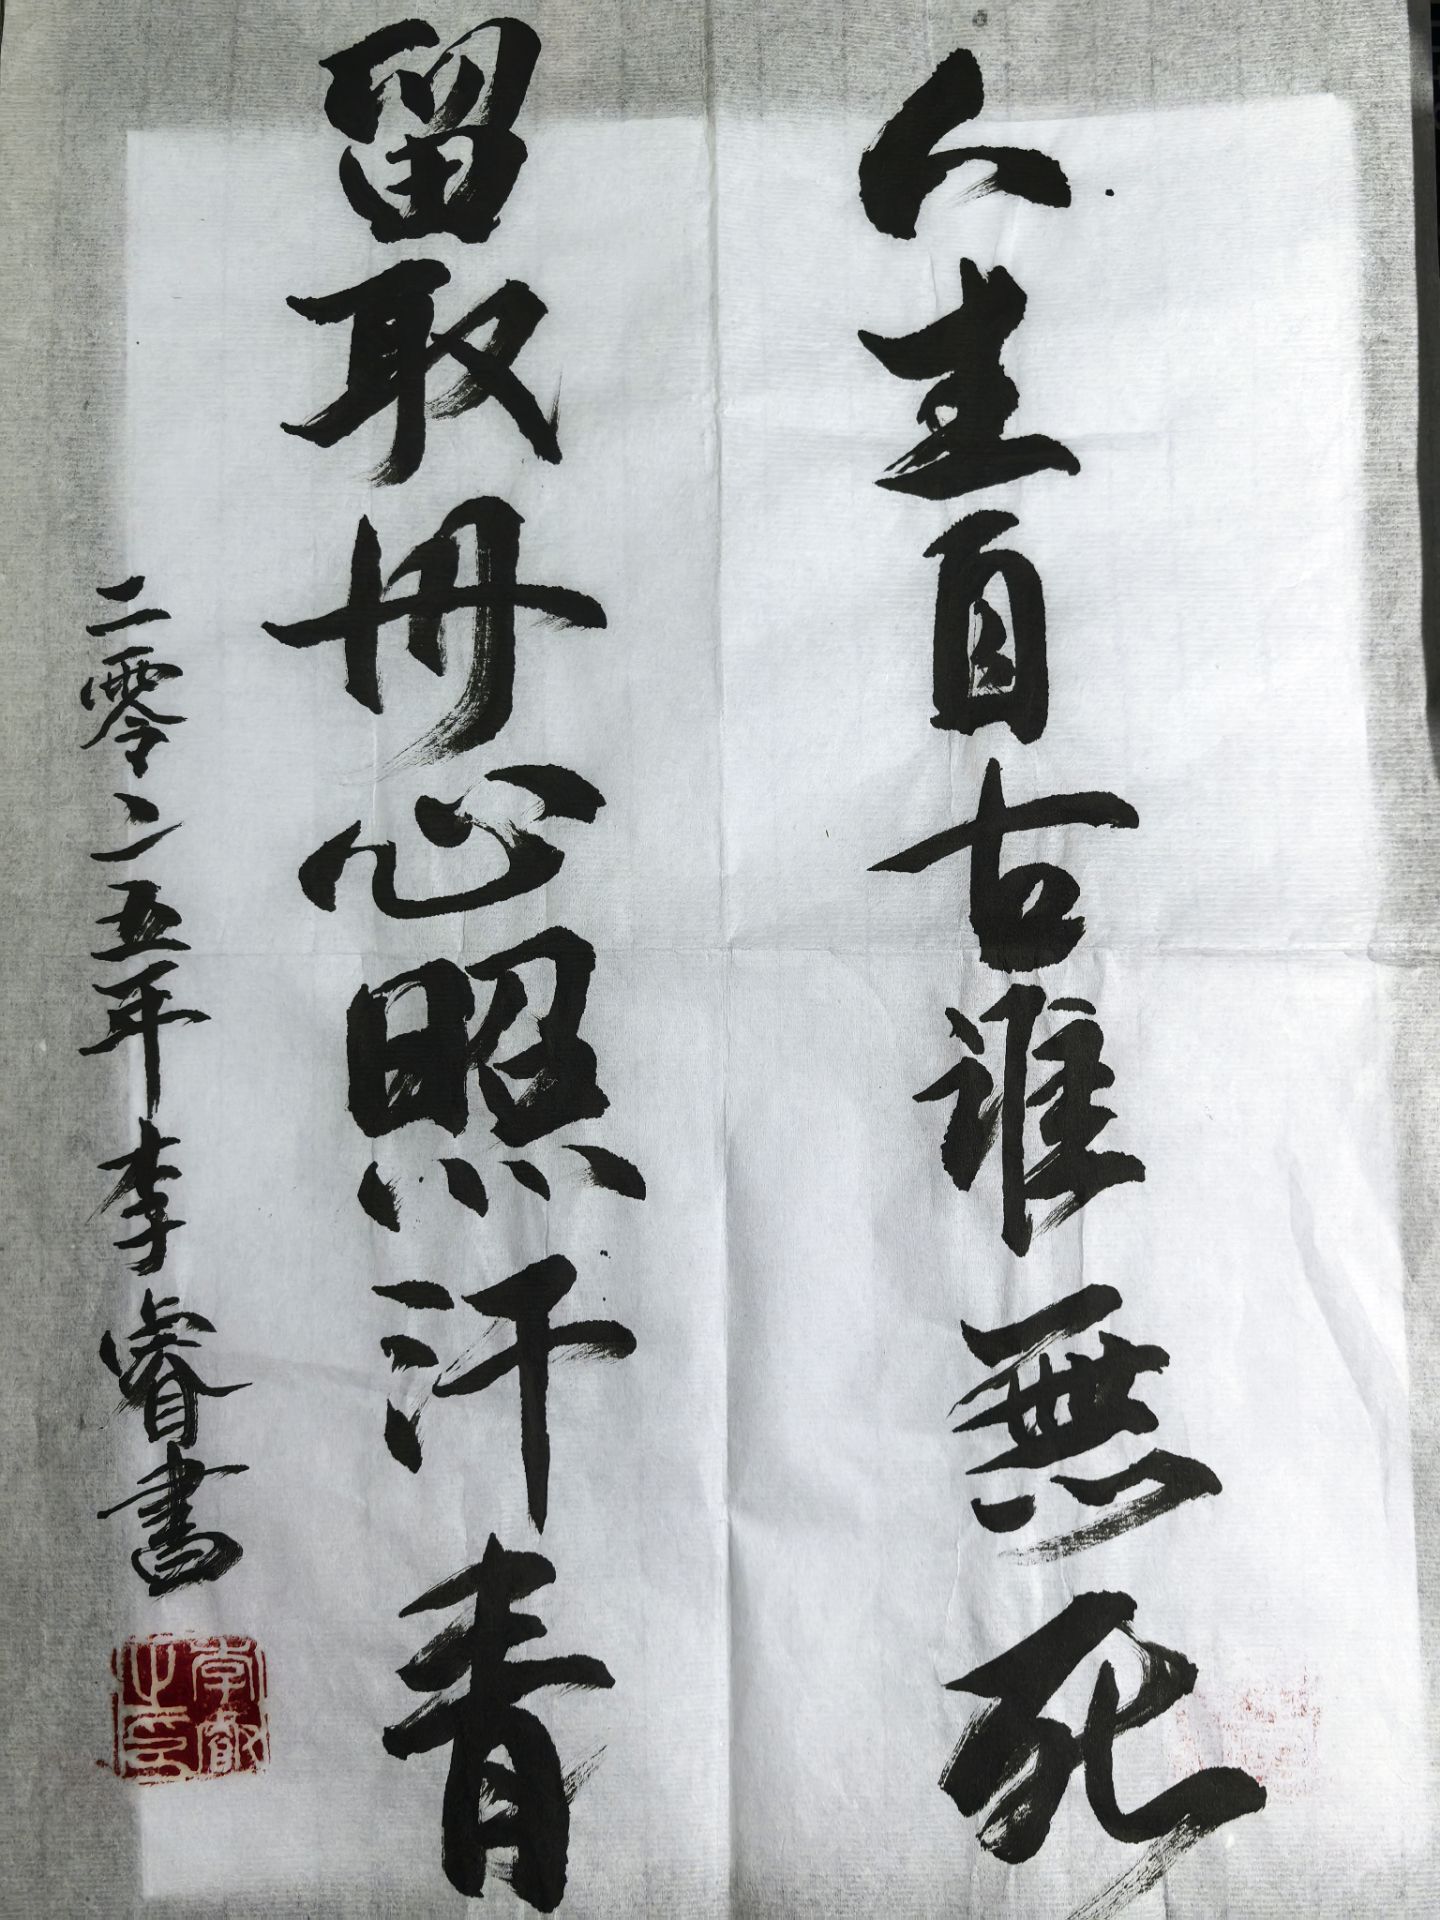 人生自古誰無死
留取丹心照汗青
二零二五年李睿書
李叡之印